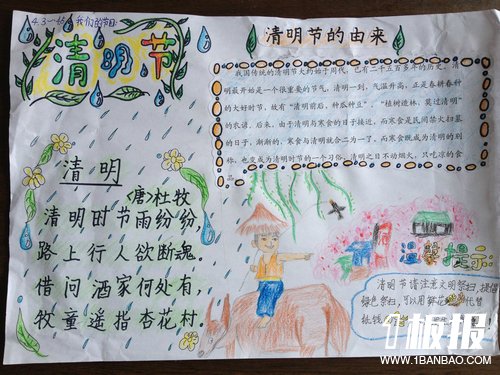 我们的节日
清明节
清明
<唐>杜牧
清明时节雨纷纷,
路上行人欲断魂.
借问酒家何处有,
牧童遥指杏花村.
清明节的由来
我国传统的清明节大约始于周代,已有二千五百多年的历史。清
明最开始是一个很重要的节气,清明一到,气温升高,正是春耕春种
的大好时节,故有“清明前后,种瓜种豆”。“植树造林,莫过清明”
的农谚。后来,由于清明与寒食的日子接近,而寒食是民间禁火扫墓
的日子,渐渐的,寒食与清明就合二为一了,而寒食既成为清明的别
称,也变成为清明时节的一个习俗,清明之日不动烟火,只吃凉的食
品。
温馨提示:
清明节请注意文明祭扫,提倡
绿色祭扫,可以用鲜花代替
纸钱
1板报
WWW.1BANBAO.COM